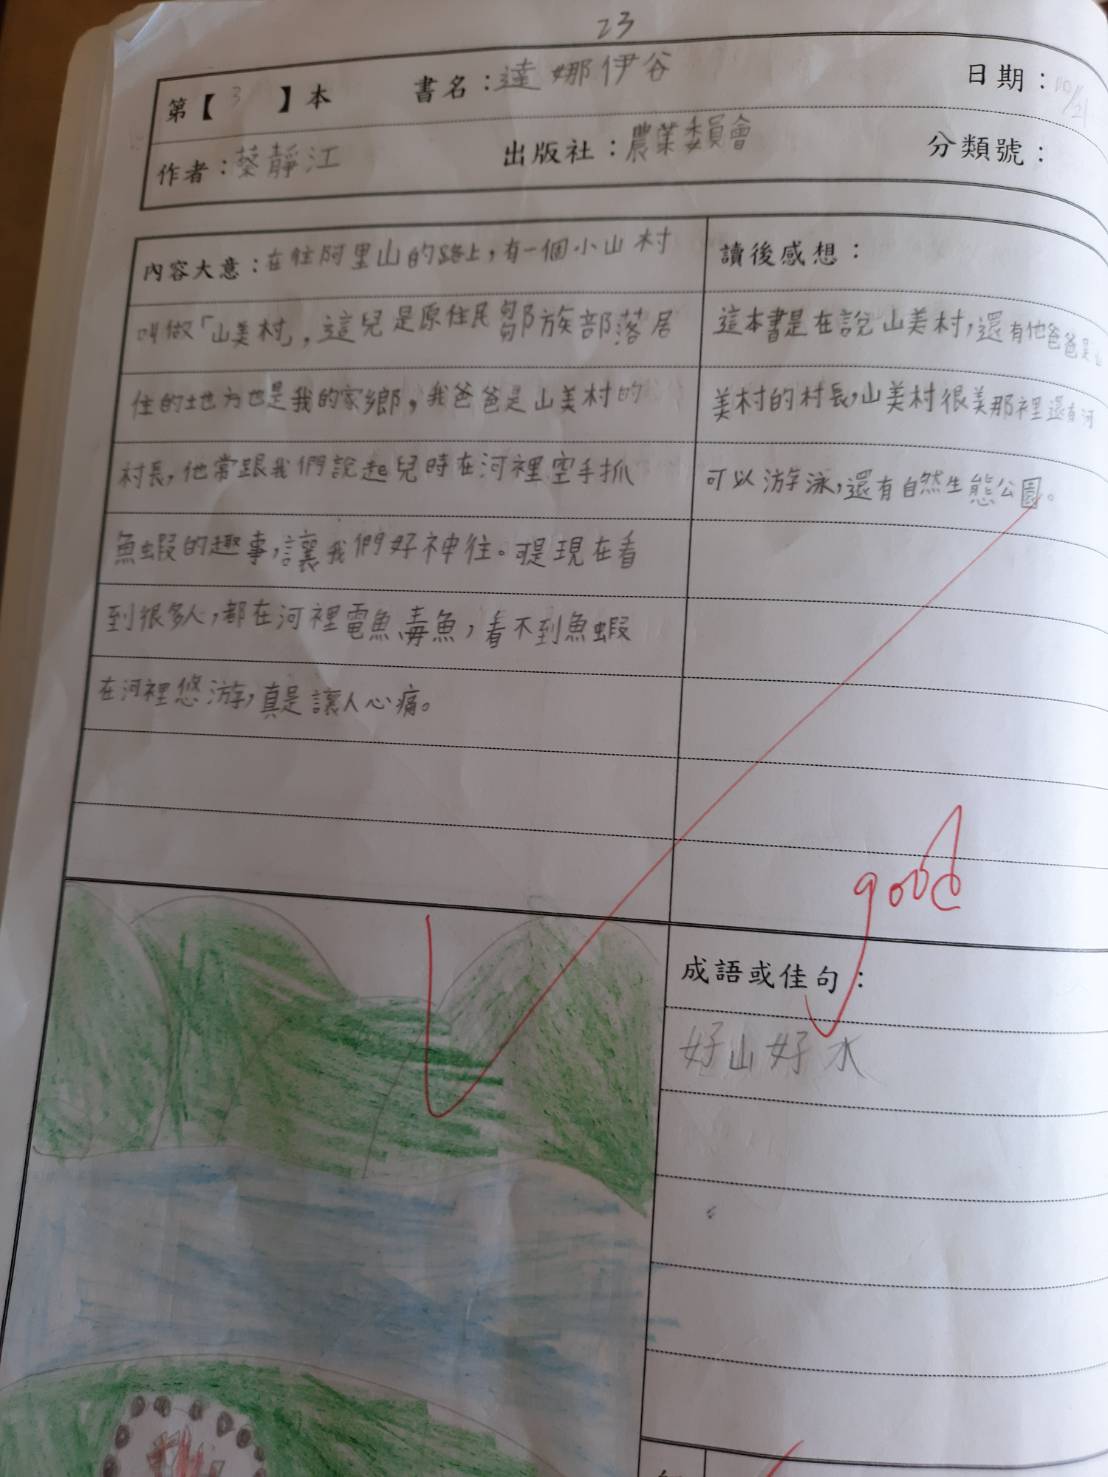 23
第【 3 】本 書名：達娜伊谷 日期：10/21
作者：蔡靜江 出版社：農業委員會 分類號：
內容大意：在往阿里山的路上，有一個小山村
叫做「山美村」，這兒是原住民鄒族部落居
住的地方也是我的家鄉，我爸爸是山美村的
村長，他常跟我們說起兒時在河裡空手抓
魚蝦的趣事，讓我們好神往。可是現在看
到很多人，都在河裡電魚、毒魚，看不到魚蝦
在河裡悠游，真是讓人心痛。
讀後感想：
這本書是在說山美村，還有他爸爸是山
美村的村長，山美村很美那裡還有河
可以游泳，還有自然生態公園。
good
成語或佳句：
好山好水